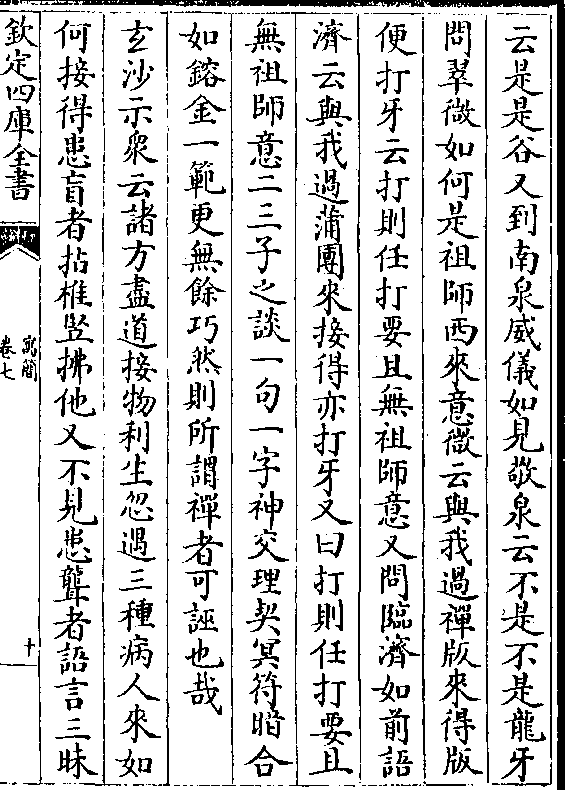 云是是谷又到南泉威儀如見敬泉云不是不是龍牙
問翠微如何是祖師西來意微云與我過禪版來得版
便打牙云打則任打要且無祖師意又問臨濟如前語
濟云與我過蒲團來接得亦打牙又曰打則任打要且
無祖師意二三子之談一句一字神交理契冥符暗合
如鎔金一範更無餘巧然則所謂禪者可誣也哉
玄沙示衆云諸方盡道接物利生忽遇三種病人來如
何接得患盲者拈椎竖拂他又不見患聾者語言三昧
欽定四庫全書
寓簡
卷七
十